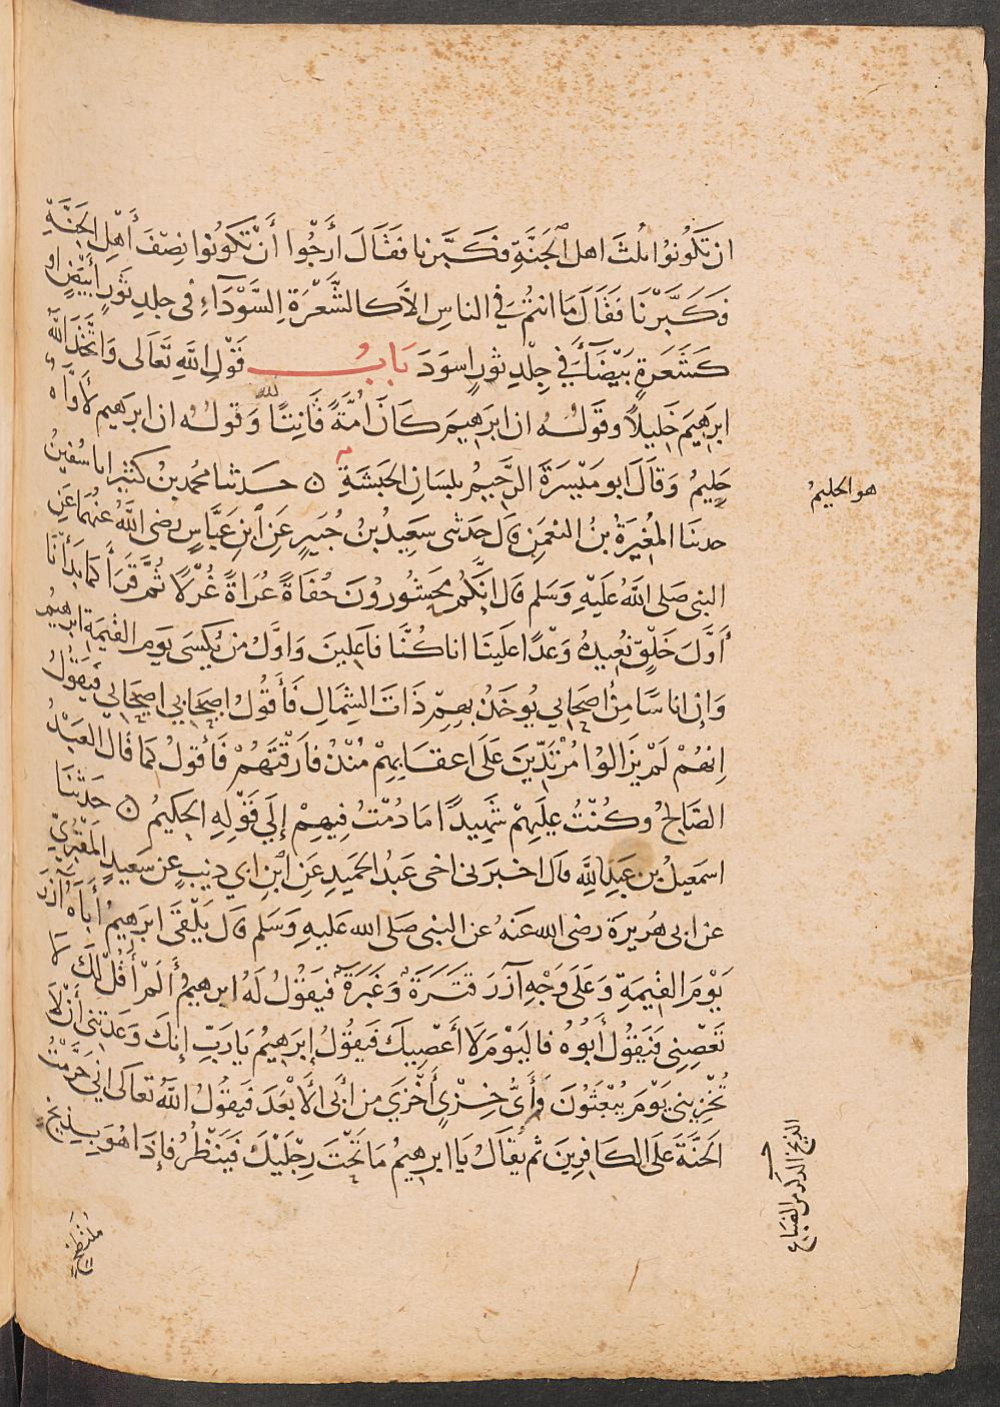 ان تَكُونُوا ثلثَ اهل الجَنَّةِ فكَبَّرنا فقَالَ أَرجُوا أَنْ تكَونُوا نِصْفَ أَهْلِ الجَنَّةِ
فكَبَّرْنَا فقَالَ مَا انتُمْ فِي الناسِ الاَّ كالشَّعْرَةِ السَّوْدَاءِ فى جلدِ ثَورٍ أَبْيَضٍ او
كَشَعَرَةٍ بَيْضَآءَ فِي جِلْدِ ثورٍ اسوَدَ بَابُ قَوْلِ اللهِ تَعَالى وَاتَّخَذَ اللهُ
ابرَهِيمَ خَلِيلاً وقَولُه ان ابرَهِيمَ كَانَ امَّةً قَانِتًا لله وَقولُه ان ابرهيم لأَوَّاهٌ
حَلِيمٌ وَقَالَ ابو مَيْسَرَةَ الرَّحِيمُ بلسَانِ الحَبَشَةِ ۝ حدثنا محمد بنُ كثيرٍ انا سُفينُ
حدثنَا المُغِيرَةُ بنُ النعمَنِ قال حدثنى سَعِيدُ بنُ جُبَيرٍ عَنِ ابنِ عَبَّاسٍ رضى اللهُ عنهُمَا عَنِ
النبى صَلى اللهُ عَلَيْهِ وَسَلم قال انَّكُم تحشُورُونَ حُفَاةً عُرَاةً غُرْلاً ثُمَّ قَرَأَ كمَا بَدَأْنَا
أَوَّلَ خَلْقٍ نُعِيدُهُ وَعْدًا عَلَينَا انا كُنَّا فاَعلِينَ وَاوَّلُ من يُكْسَى يَومَ القِيمَةِ ابرهيمُ
وَإِن اناسًا مِنْ اصحَابي يُوخَذُ بهِمْ ذَاتَ الشِمَالِ فَأَقُولُ اصحَابي اصحَابي فَيَقُولُ
انهُمْ لَمْ يَزَالُوا مُرْتَدِّينَ عَلَى اعقَابِهِمْ مُنْذُ فاَرقْتَهُمْ فَأَقولُ كمَا قَال العَبْدُ
الصَّالحُ وكُنْتُ عليَهِمْ شَهِيدًا مَا دُمْتُ فِيهِمْ إِلَي قَوْلِهِ الحكيمُ ۝ حَدثنَا
اسمَعيلُ بن عَبدِ اللهِ قال اخبرنى اخى عَبدُ الحَمِيدِ عَنِ ابْنِ ابي ذيبٍ عن سَعيدٍ المَقبُرِيِّ
عن ابى هُريرَةَ رضى الله عَنهُ عن النبى صَلى الله عَليهِ وَسَلم قال يَلْقَى ابرَهِيمُ أَبَاهُ آزَرَ
يَوْمَ القِيمَةِ وَعَلَى وَجْهِ آزَرَ قَتَرَةٌ وَغَبَرَةٌ فيَقُولُ لَهُ ابرهِيمُ أَلَمْ أَقُلْ لَكَ لاَ
تَعْصِنِى فَيَقُولُ أَبُوهُ فالْيَوْمَ لاَ أَعْصِيكَ فَيَقُولُ إِبرَهِيمُ يَا رَبِّ إِنكَ وَعَدتنى أَنْ لاَ
تُخْزِيني يَوْمَ يُبْعَثُونَ وَأَيُّ خِزْيٍ أَخْزَي من أَبى الأَبْعَدَ فَيقُولُ اللهُ تعَالَى انى حَرَّمْتُ
الجَنَّةَ عَلَى الكَافِرِينَ ثم يُقَالُ يَا ابرهيمُ مَا تَحْتَ رِجْلَيْكَ فَيَنْظُرُ فإِذَا هُوَ بِذِيخٍ
هو الحليمُ
الذيخ الذكر من الضباع
مُلتَطِخٍ